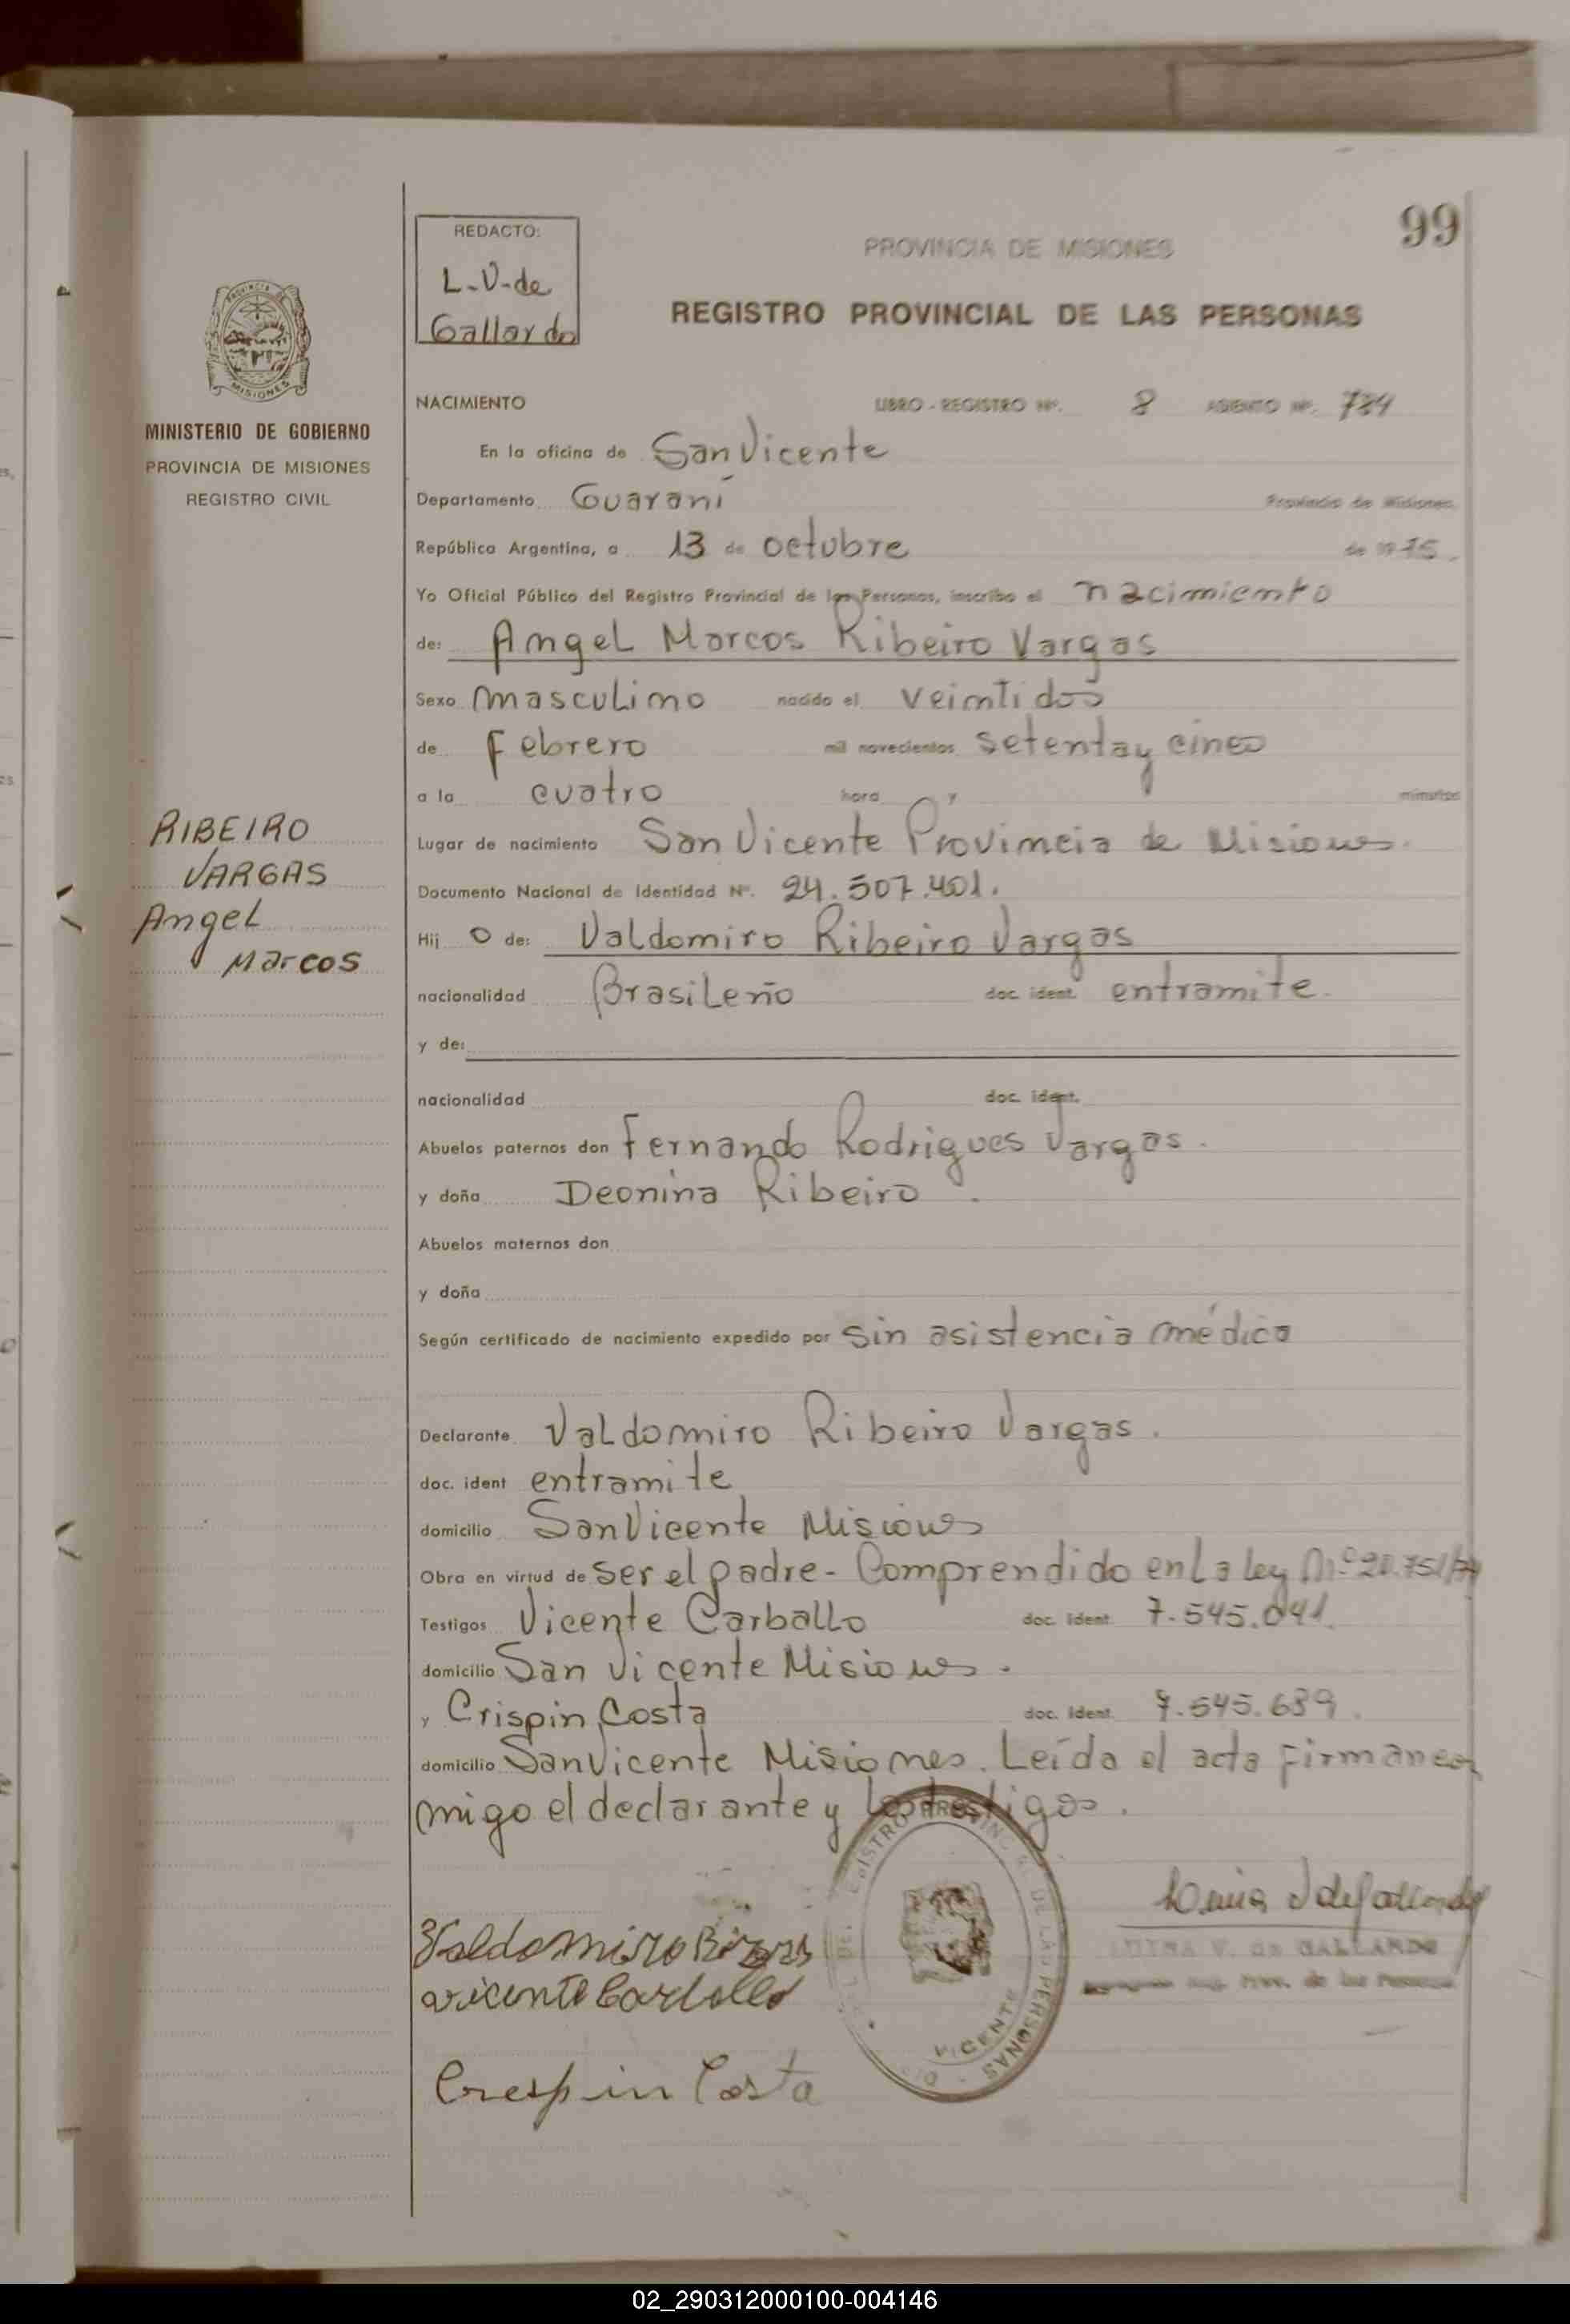 99
REDACTO:
L.V. de
Gallardo
PROVINCIA DE MISIONES
REGISTRO PROVINCIAL DE LAS PERSONAS
PROVINCIA DE
MISIONES
MINISTERIO DE GOBIERNO
PROVINCIA DE MISIONES
REGISTRO CIVIL
RIBEIRO
VARGAS
Angel
Marcos
NACIMIENTO LIBRO - REGISTRO Nº. 8 ASIENTO Nº. 784
En la oficina de San Vicente
Departamento Guaraní Provincia de Misiones
República Argentina, a 13 de octubre de 1975.
Yo Oficial Público del Registro Provincial de las Personas, inscribo el nacimiento
de: Angel Marcos Ribeiro Vargas
Sexo masculino nacido el veintidos
de febrero mil novecientos setenta y cinco
a la cuatro hora y minutos
Lugar de nacimiento San Vicente Provincia de Misiones.
Documento Nacional de Identidad Nº. 24.507.401.
Hij o de: Valdomiro Ribeiro Vargas
nacionalidad Brasileño doc. ident. entramite.
y de:
nacionalidad doc. ident.
Abuelos paternos don Fernando Rodrigues Vargas.
y doña Deonina Ribeiro.
Abuelos maternos don
y doña
Según certificado de nacimiento expedido por sin asistencia médica
Declarante Valdomiro Ribeiro Vargas.
doc. ident entramite
domicilio San Vicente Misiones
Obra en virtud de ser el padre - Comprendido en La Ley Nº 20.751/74
Testigos Vicente Carballo doc. ident. 7.545.041.
domicilio San Vicente Misiones.
y Crispin Costa doc. ident. 7.545.689.
domicilio San Vicente Misiones. Leída el acta firman con
migo el declarante y los testigos.
REGISTRO PROVINCIAL DE LAS PERSONAS
VICENTE
Valdomiro
Vicente Carballo
Crespin Costa
Luisa V de Gallardo
LUISA V. de GALLARDO
Prov. de las Personas
02_290312000100-004146